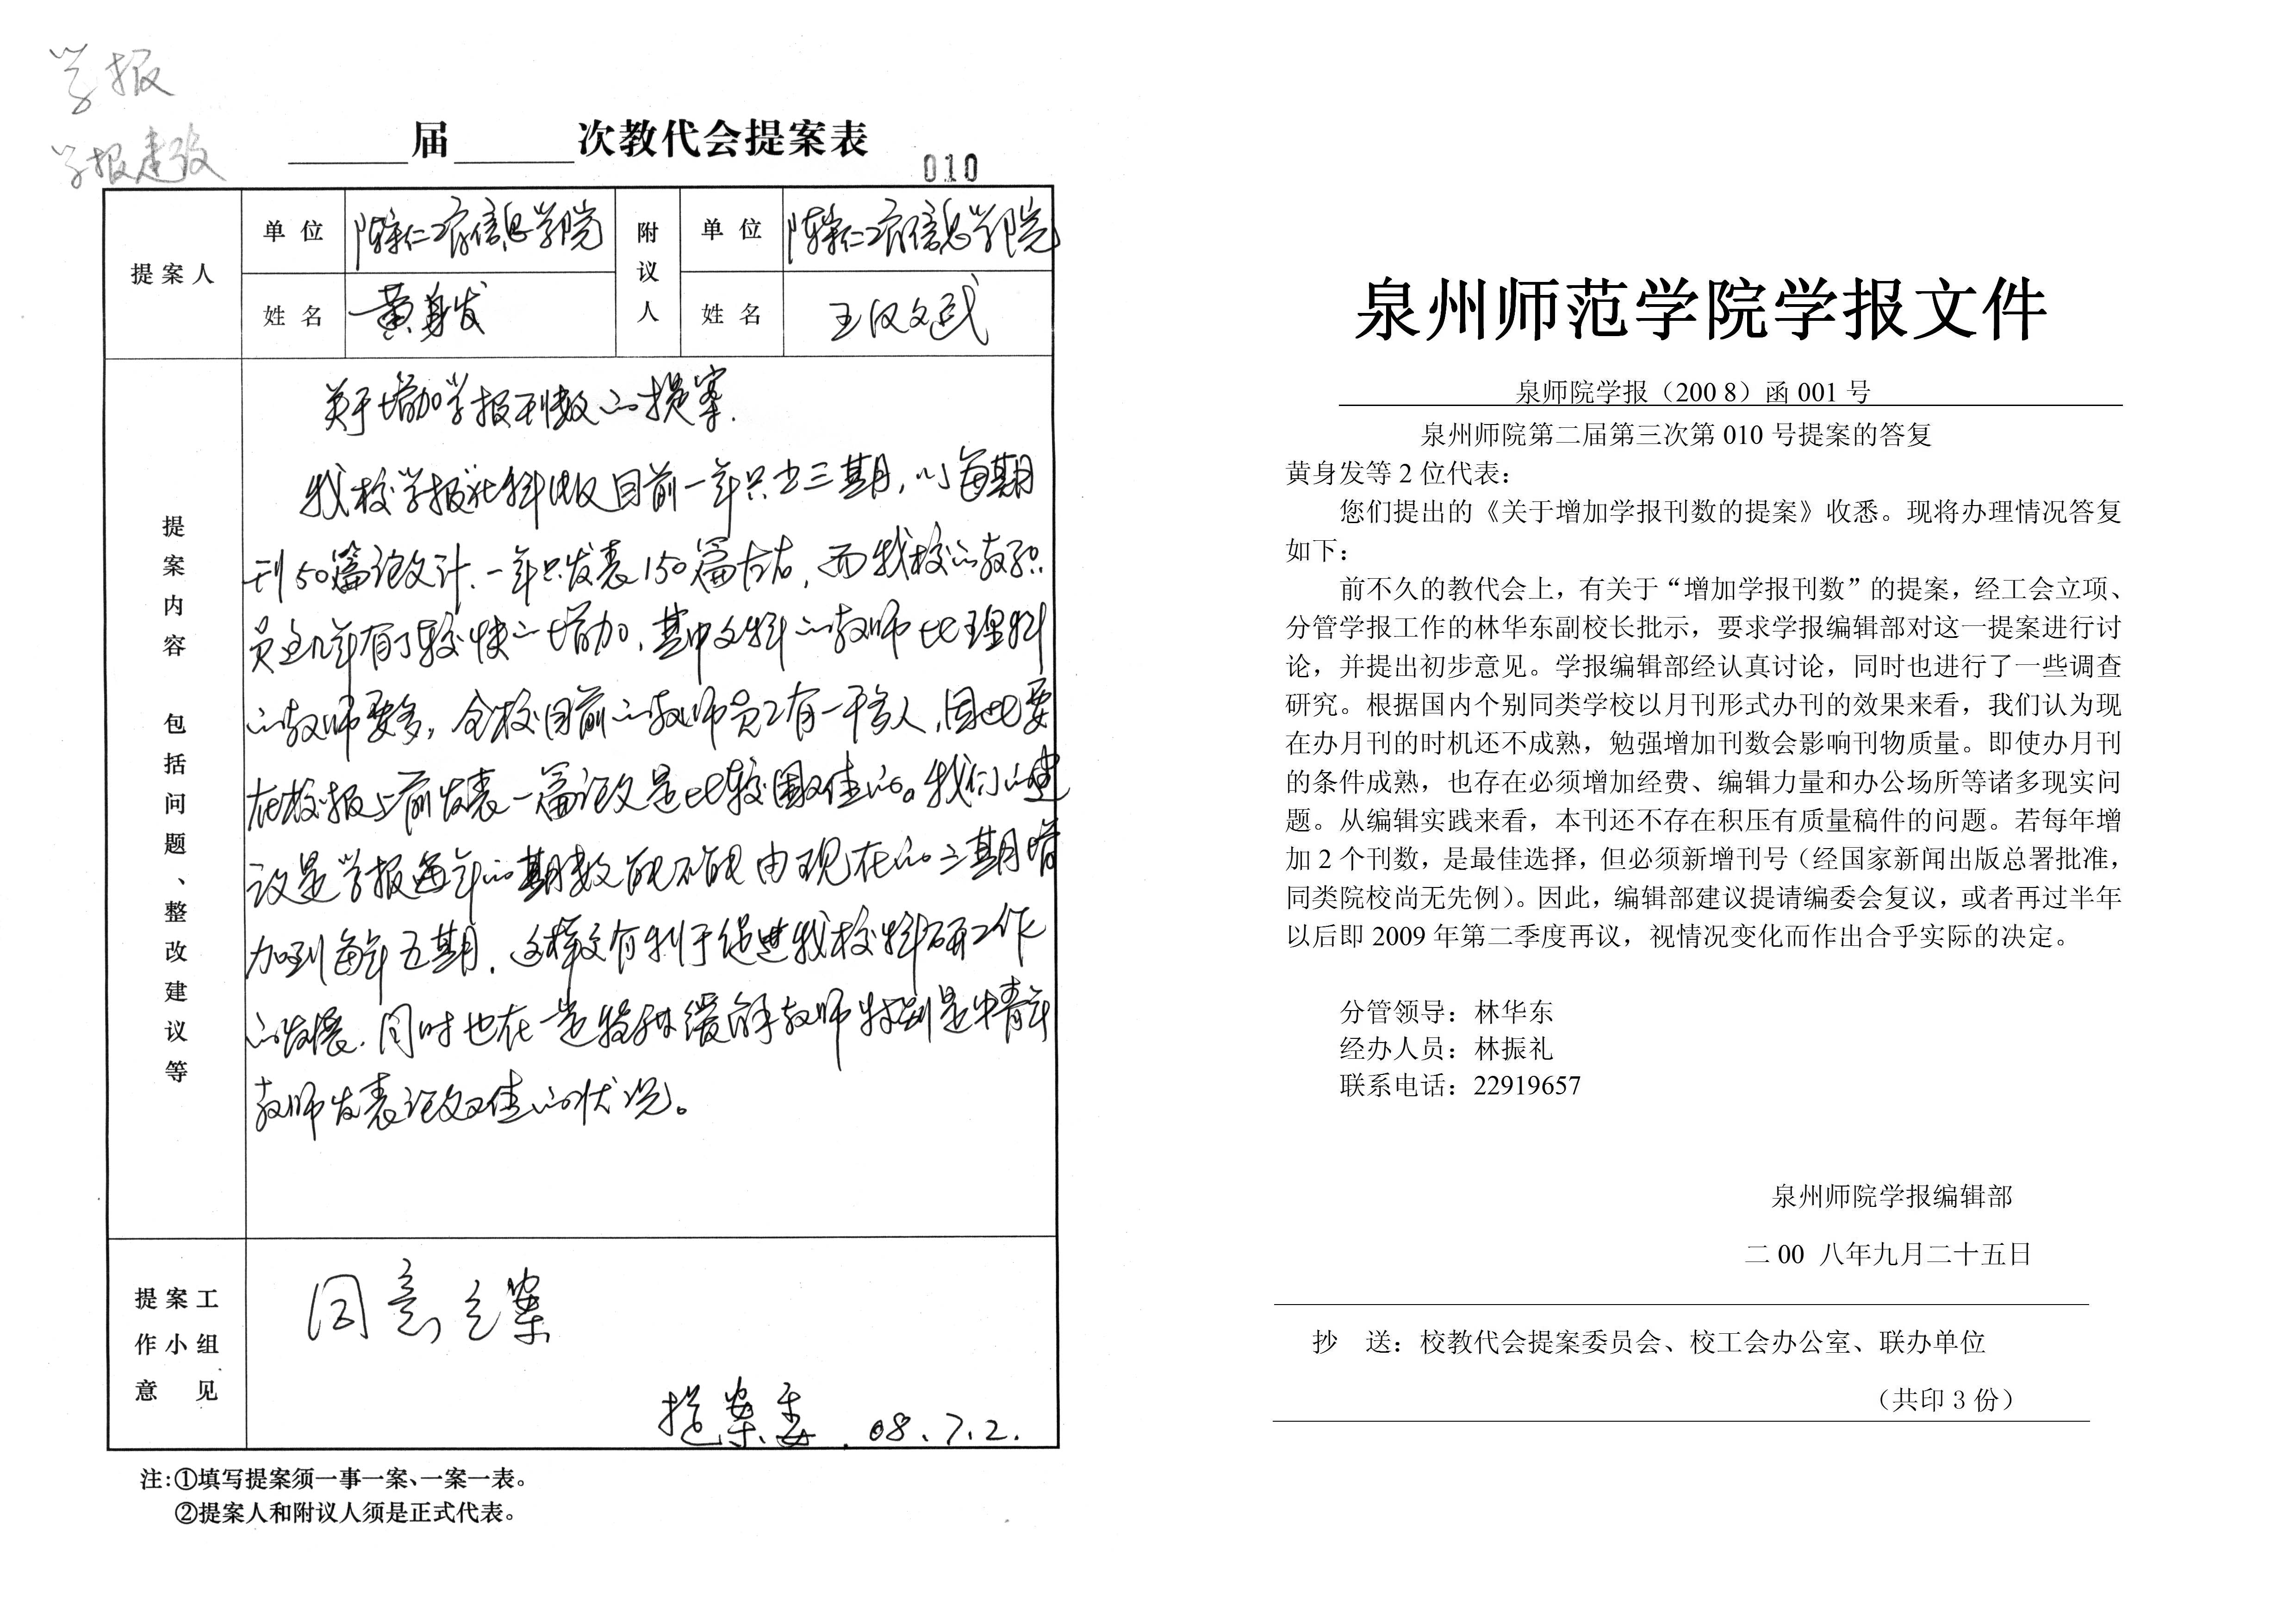 学报
学报建设
届 次教代会提案表
010
提案人
单位 陈守仁工商信息学院
姓名 黄身发
附议人
单位 陈守仁工商信息学院
姓名 王汉文武
提案内容 包括问题、整改建议等
关于增加学报刊数的提案.
我校学报社科版目前一年只出三期,以每期
刊50篇论文计.一年只发表150篇左右,而我校的教职
员这几年有了较快的增加.其中文科的教师比理科
的教师要多,全校目前的教师员工有一千多人,因此要
在校报上前发表一篇论文是比较困难的。我们的建
议是学报每年的期数能不能由现在的三期增
加到每年五期,这样文有利于促进我校科研工作
的发展.同时也在一定 缓解教师特别是中青年
教师发表论文难的状况。
提案工作小组意见
同意立案
提案委.08.7.2.
注:①填写提案须一事一案、一案一表。
②提案人和附议人须是正式代表。
泉州师范学院学报文件
泉师院学报（200 8）函 001 号
泉州师院第二届第三次第 010 号提案的答复
黄身发等 2 位代表：
您们提出的《关于增加学报刊数的提案》收悉。现将办理情况答复
如下：
前不久的教代会上，有关于“增加学报刊数”的提案，经工会立项、
分管学报工作的林华东副校长批示，要求学报编辑部对这一提案进行讨
论，并提出初步意见。学报编辑部经认真讨论，同时也进行了一些调查
研究。根据国内个别同类学校以月刊形式办刊的效果来看，我们认为现
在办月刊的时机还不成熟，勉强增加刊数会影响刊物质量。即使办月刊
的条件成熟，也存在必须增加经费、编辑力量和办公场所等诸多现实问
题。从编辑实践来看，本刊还不存在积压有质量稿件的问题。若每年增
加 2 个刊数，是最佳选择，但必须新增刊号（经国家新闻出版总署批准，
同类院校尚无先例）。因此，编辑部建议提请编委会复议，或者再过半年
以后即 2009 年第二季度再议，视情况变化而作出合乎实际的决定。
分管领导：林华东
经办人员：林振礼
联系电话：22919657
泉州师院学报编辑部
二 00 八年九月二十五日
抄 送：校教代会提案委员会、校工会办公室、联办单位
（共印 3 份）